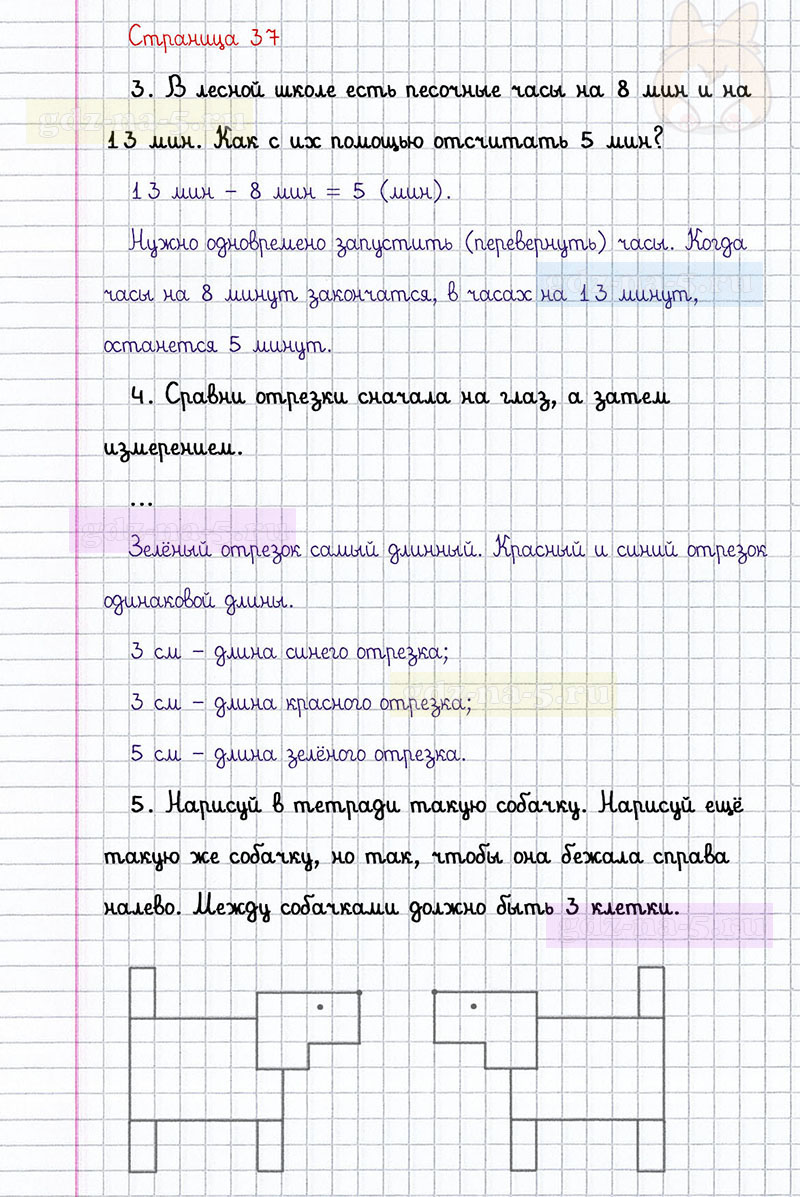 Страница 37
3. В лесной школе есть песочные часы на 8 мин и на
13 мин. Как с их помощью отсчитать 5 мин?
gdz-na-5.ru
13 мин - 8 мин = 5 (мин).
Нужно одновремено запустить (перевернуть) часы. Когда
часы на 8 минут закончатся, в часах на 13 минут,
gdz-na-5.ru
останется 5 минут.
4. Сравни отрезки сначала на глаз, а затем
измерением.
...
gdz-na-5.ru
Зелёный отрезок самый длинный. Красный и синий отрезок
одинаковой длины.
3 см - длина синего отрезка;
3 см - длина красного отрезка;
gdz-na-5.ru
5 см - длина зелёного отрезка.
5. Нарисуй в тетради такую собачку. Нарисуй ещё
такую же собачку, но так, чтобы она бежала справа
налево. Между собачками должно быть 3 клетки.
gdz-na-5.ru